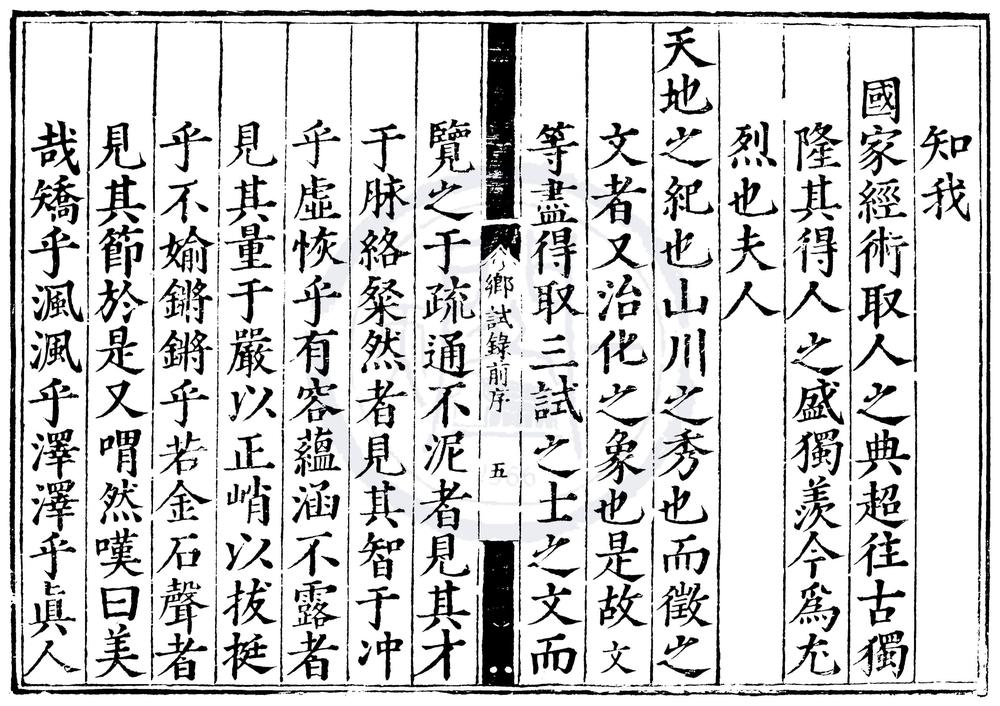 知我
國家經術取人之典超往古獨
隆其得人之盛獨羨今爲尤
烈也夫人
天地之紀也山川之秀也而徵之
文者又治化之象也是故文
等盡得取三試之士之文而
鄉試錄前序 五
覽之于疏通不泥者見其才
于脉絡粲然者見其智于冲
乎虛恢乎有容蘊涵不露者
見其量于嚴以正峭以拔挺
乎不婾鏘鏘乎若金石聲者
見其節於是又喟然嘆曰美
哉矯乎渢渢乎澤澤乎眞人